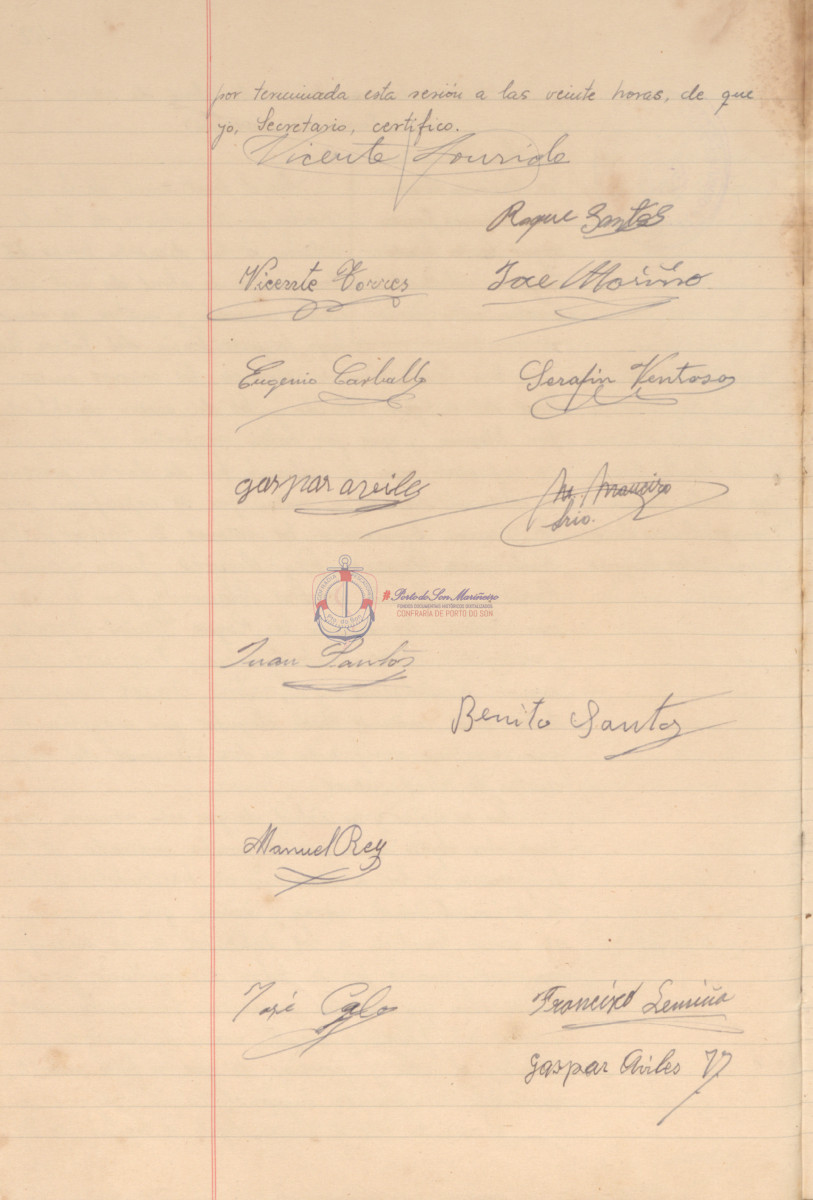 por terminada esta sesión a las veinte horas, de que
yo, Secretario, certifico.
Vicente Louride
Roque Santos
Vicente Torres
Jose Mariño
Eugenio Carballo
Serafin Ventoso
gaspar aviles
M. Maneiro
Srio.
Porto do Son Mariñeiro
FONDOS DOCUMENTAIS HISTÓRICOS DIXITALIZADOS
CONFRARÍA DE PORTO DO SON
Juan Santos
Benito Santos
Manuel Rey
José
Francisco
gaspar Aviles